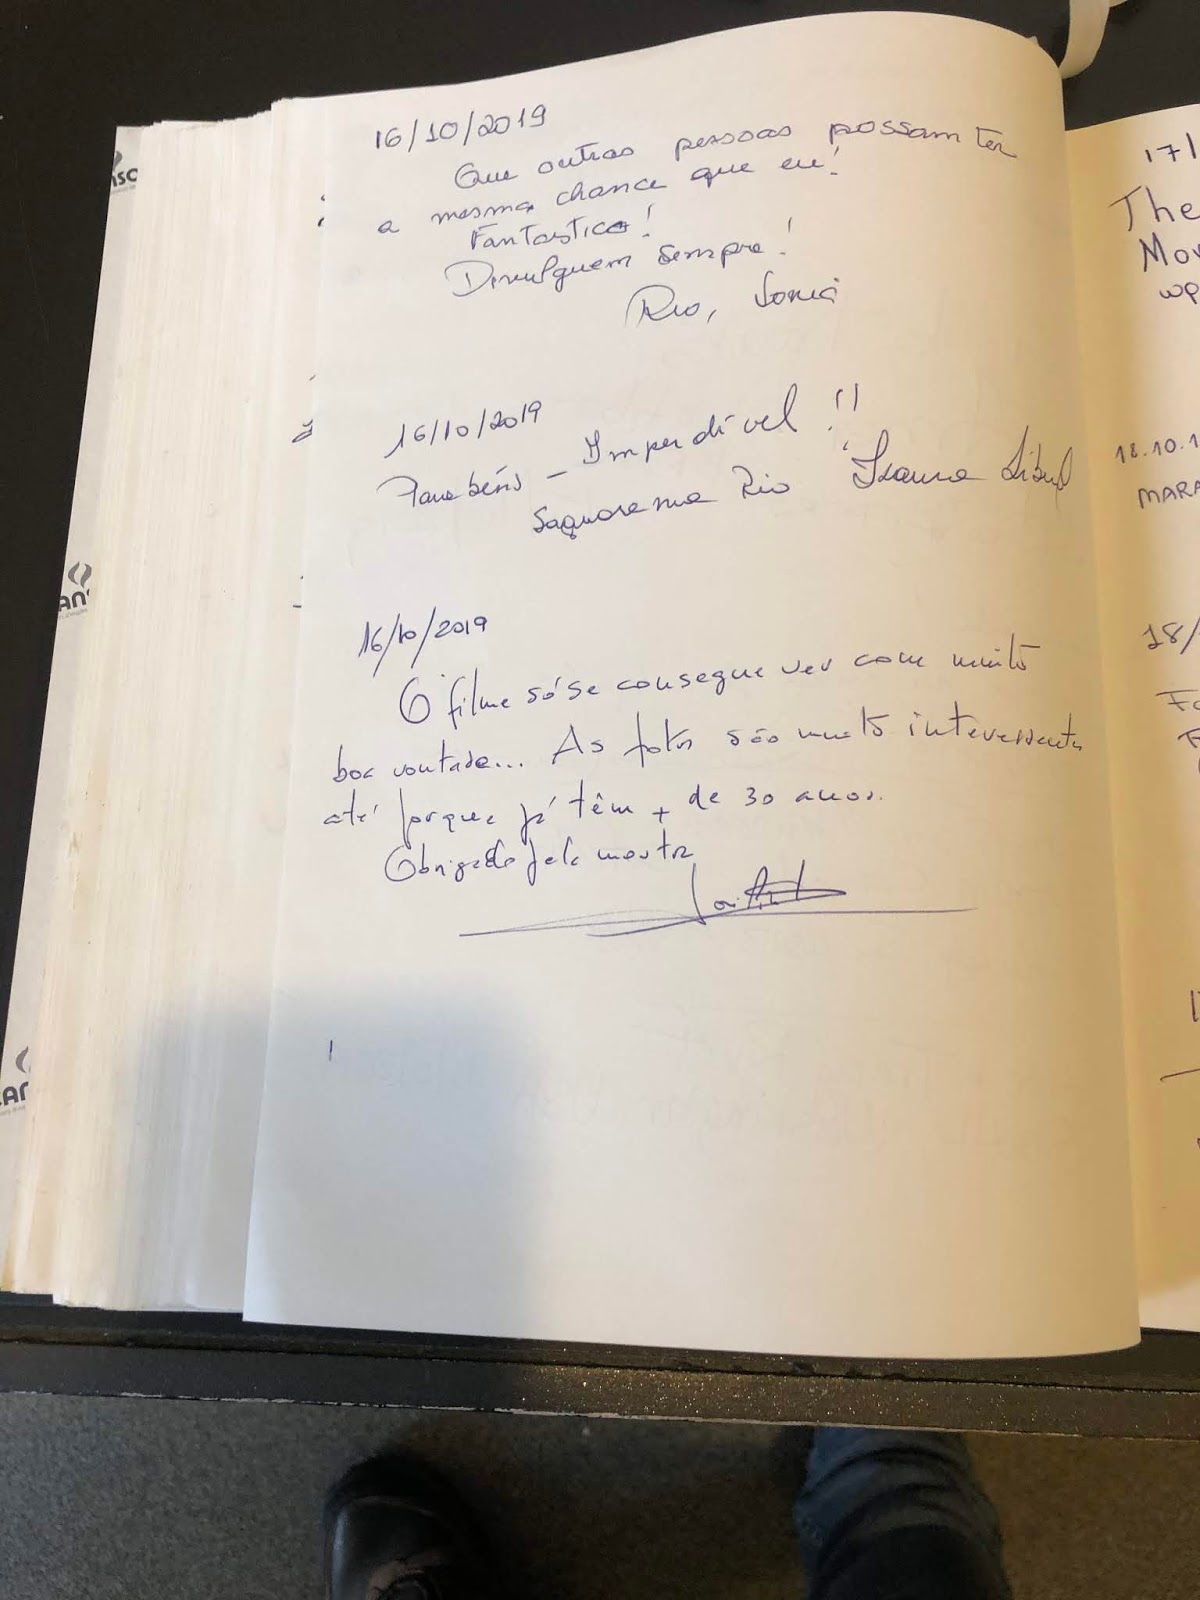 16/10/2019
Que outras pessoas possam ter
a mesma chance que eu!
Fantastico!
Divulguem sempre!
Rio, Sonia
16/10/2019
Parabéns - Imperdível!!
Saquarema Rio
16/10/2019
O filme só se consegue ver com muito
boa vontade... As fotos são muito interessantes
até porque já têm + de 30 anos.
Obrigado pela mostra
17/
The
Mov
18.10.1
MARA
18/